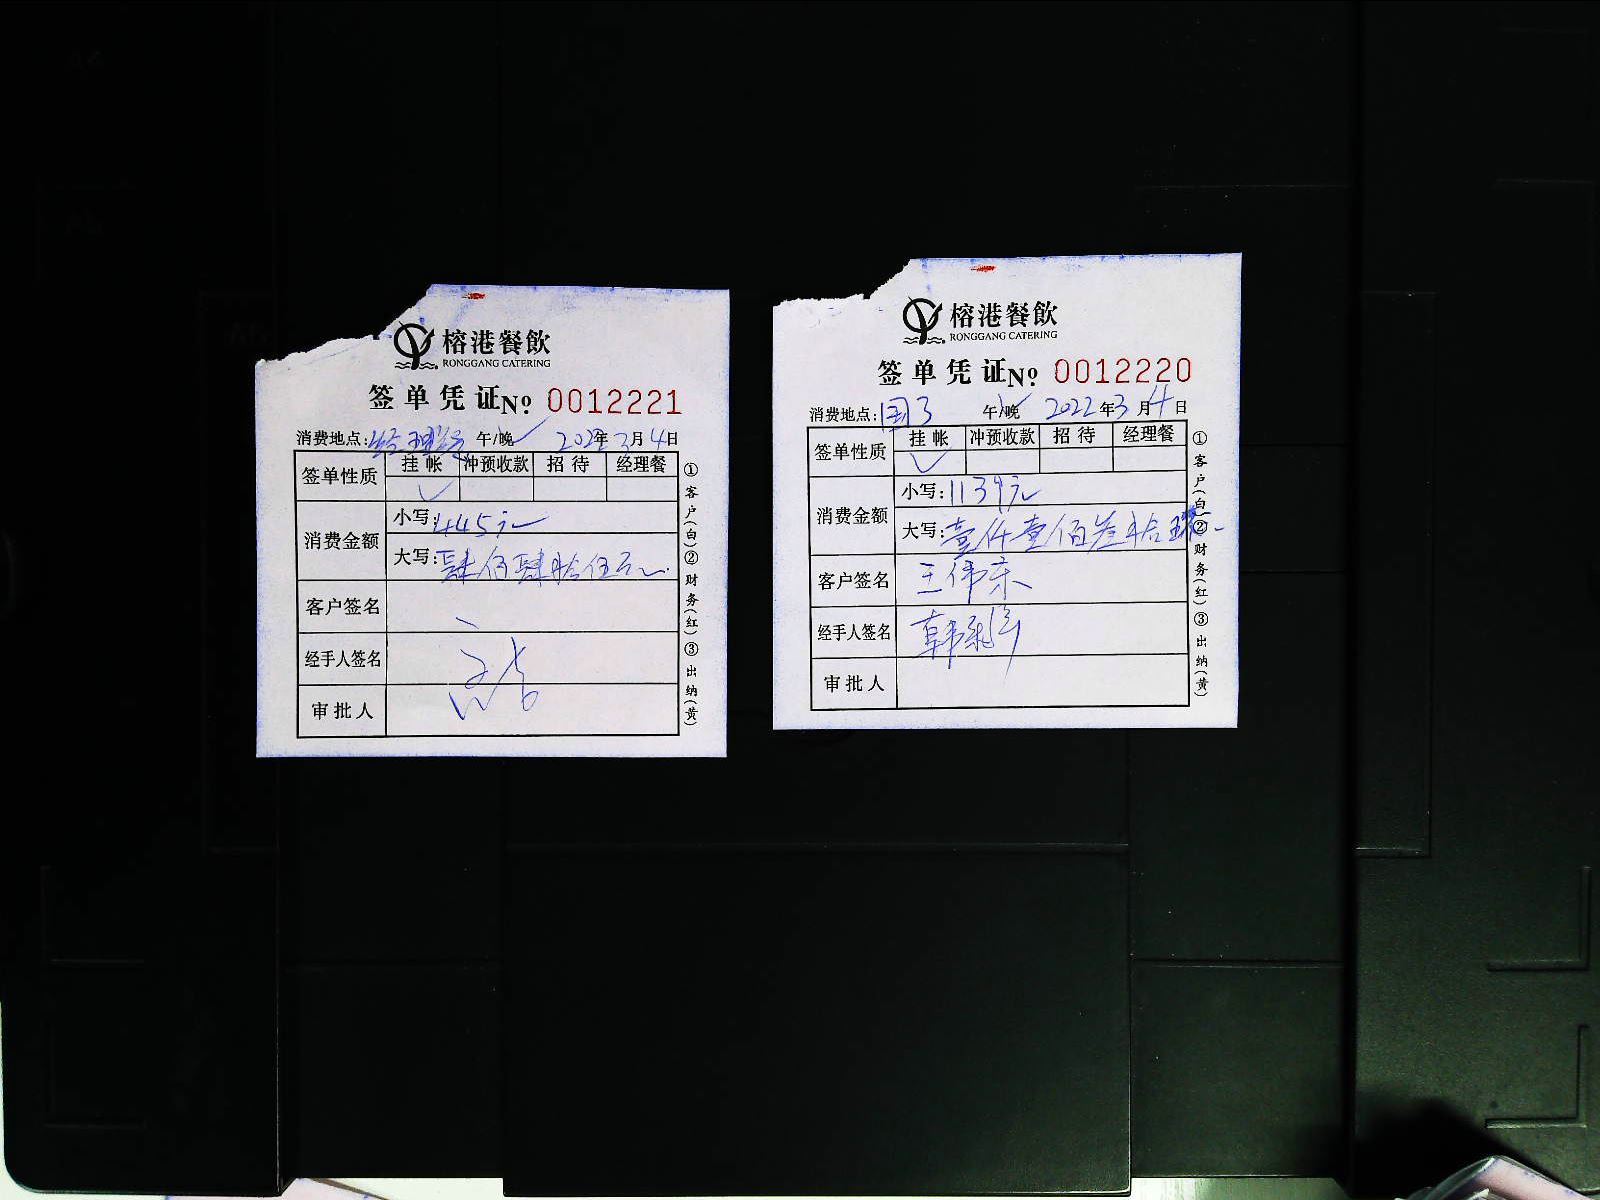 榕港餐飲
RONGGANG CATERING
签单凭证 No 0012221
消费地点: 经理餐 午/晚 2022年3月4日
签单性质 挂帐 冲预收款 招待 经理餐
消费金额 小写: 445元
大写: 肆佰肆拾伍元
客户签名
经手人签名
审批人
①客户(白)②财务(红)③出纳(黄)
榕港餐飲
RONGGANG CATERING
签单凭证 No 0012220
消费地点: 午/晚 2022年3月4日
签单性质 挂帐 冲预收款 招待 经理餐
消费金额 小写: 1139元
大写: 壹仟壹佰叁拾玖
客户签名 王伟东
经手人签名 韩
审批人
①客户(白)②财务(红)③出纳(黄)